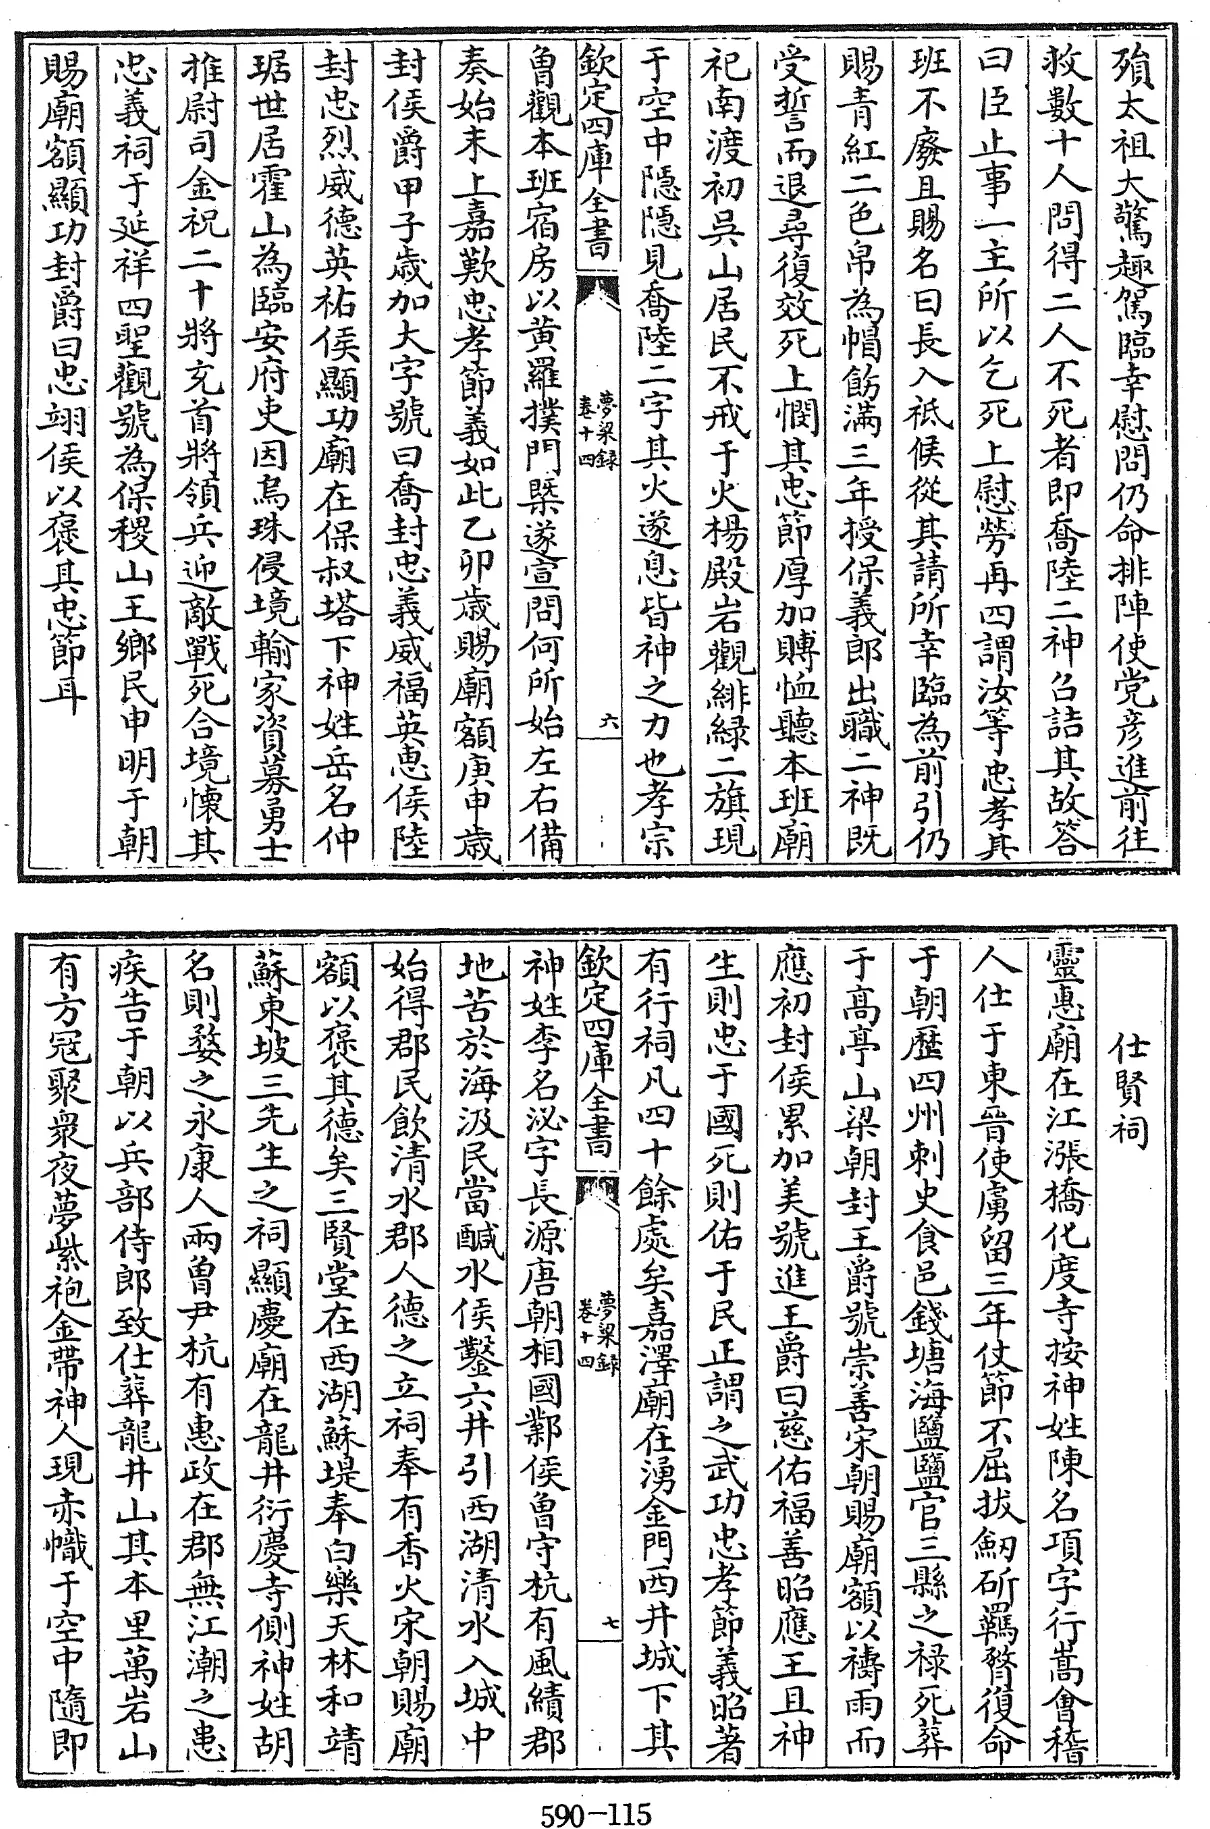 殞太祖大驚趣駕臨幸慰問仍命排陣使党彦進前往
救數十人問得二人不死者即喬陸二神召詰其故答
曰臣止事一主所以乞死上慰勞再四謂汝等忠孝其
班不廢且賜名曰長入祗候從其請所幸臨為前引仍
賜青紅二色帛為帽飭滿三年授保義郎出職二神既
受誓而退尋復效死上憫其忠節厚加賻恤聽本班廟
祀南渡初吳山居民不戒于火楊殿岩觀緋緑二旗現
于空中隱隱見喬陸二字其火遂息皆神之力也孝宗
欽定四庫全書
夢粱録
卷十四
六
魯觀本班宿房以黄羅撲門㮣遂宣問何所始左右備
奏始末上嘉歎忠孝節義如此乙卯歲賜廟額庚申歲
封侯爵甲子歲加大字號曰喬封忠義威福英惠侯陸
封忠烈威德英祐侯顯功廟在保叔塔下神姓岳名仲
琚世居霍山為臨安府吏因烏珠侵境輸家資募勇士
推尉司金祝二十將充首將領兵迎敵戰死合境懷其
忠義祠于延祥四聖觀號為保稷山王鄉民申明于朝
賜廟額顯功封爵曰忠翊侯以褒其忠節耳
仕賢祠
靈惠廟在江漲橋化度寺按神姓陳名項字行嵩會稽
人仕于東晉使虜留三年仗節不屈拔劒斫羈贅復命
于朝歴四州刺史食邑錢塘海鹽鹽官三縣之禄死葬
于髙亭山梁朝封王爵號崇善宋朝賜廟額以禱雨而
應初封侯累加美號進王爵曰慈佑福善昭應王且神
生則忠于國死則佑于民正謂之武功忠孝節義昭著
有行祠凡四十餘處矣嘉澤廟在湧金門西井城下其
欽定四庫全書
夢粱録
卷十四
七
神姓李名泌字長源唐朝相國鄴侯魯守杭有風績郡
地苦於海汲民當鹹水侯鑿六井引西湖清水入城中
始得郡民飲清水郡人德之立祠奉有香火宋朝賜廟
額以褒其德矣三賢堂在西湖蘇堤奉白樂天林和靖
蘇東坡三先生之祠顯慶廟在龍井衍慶寺側神姓胡
名則婺之永康人兩曾尹杭有惠政在郡無江潮之患
疾告于朝以兵部侍郎致仕葬龍井山其本里萬岩山
有方冦聚衆夜夢紫袍金帶神人現赤幟于空中隨即
590-115